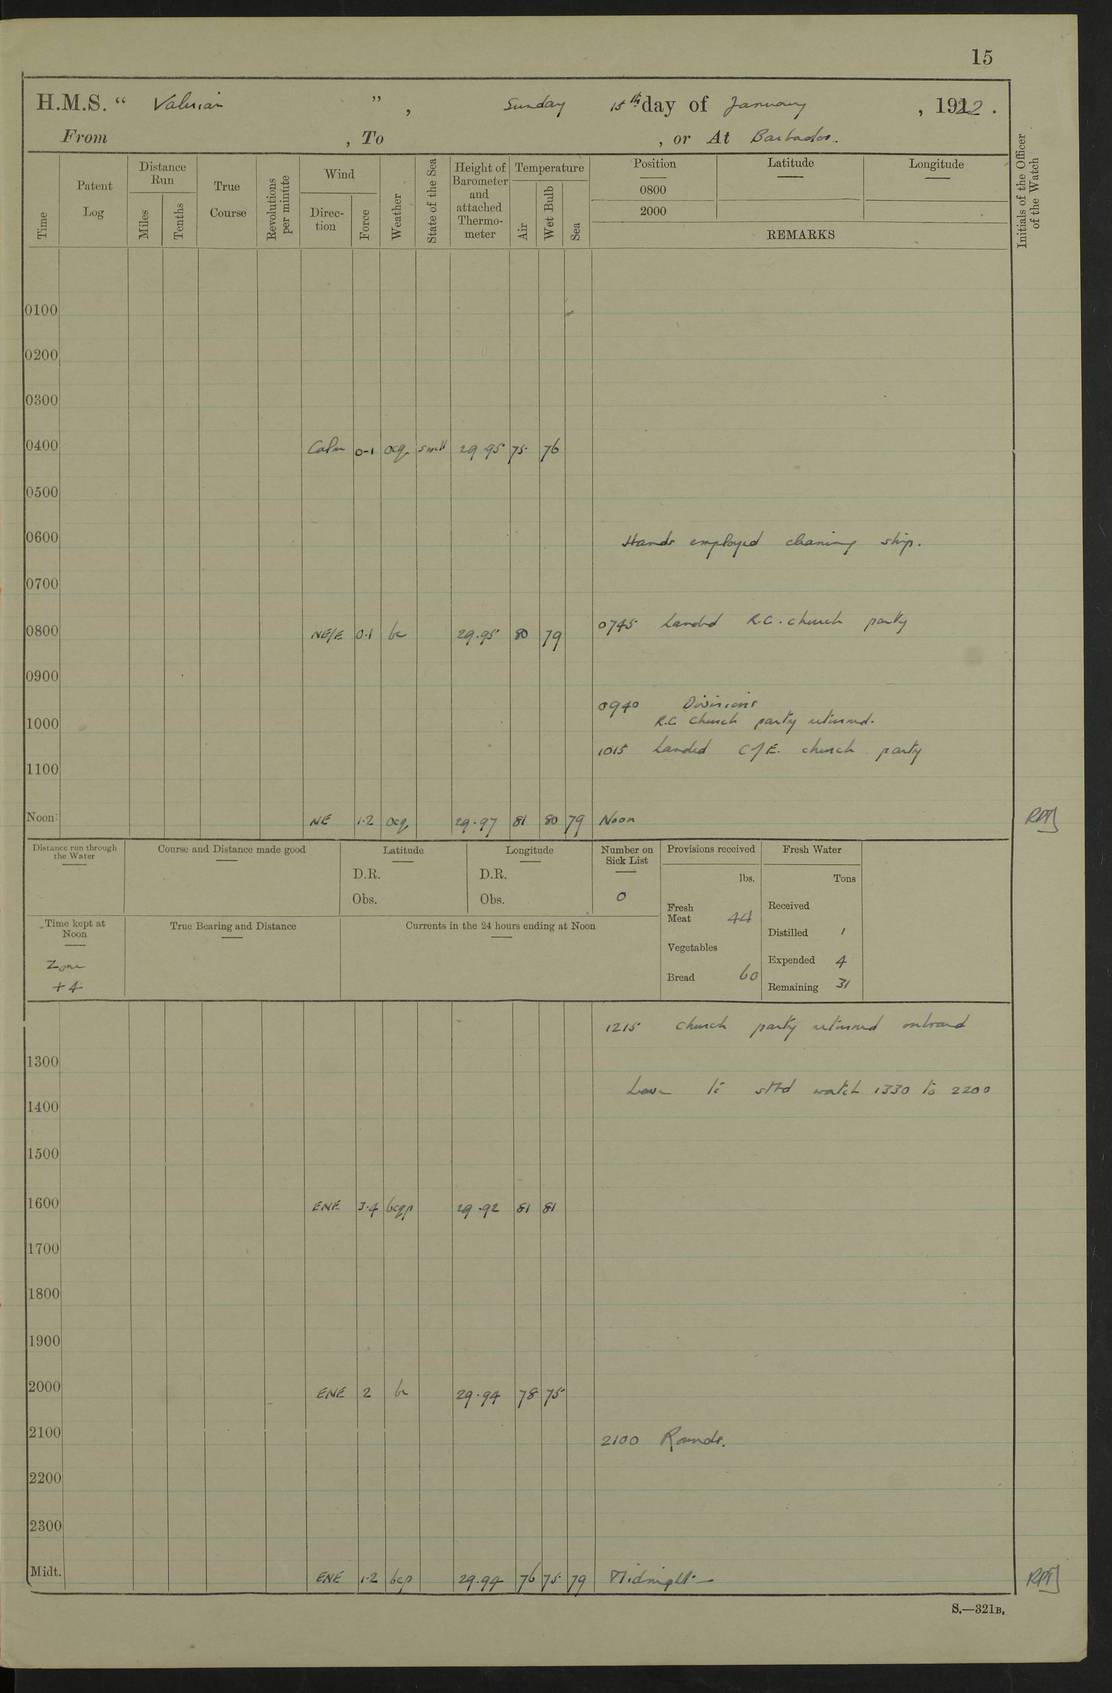 15
H.M.S. “ Valerian ” , Sunday 15th day of January , 1922 .
From , To , or At Barbados.
Time
Patent Log
Distance Run
Miles
Tenths
True Course
Revolutions per minute
Wind
Direc-tion
Force
Weather
State of the Sea
Height of Barometer and attached Thermo-meter
Temperature
Air
Wet Bulb
Sea
Position
Latitude
Longitude
0800
2000
REMARKS
Initials of the Officer of the Watch
0100
0200
0300
0400 Calm 0-1 ocq smll 29.95 75 76
0500
0600 Hands employed cleaning ship.
0700
0745 Landed R.C. church party
0800 NE/E 0.1 bc 29.95 80 79
0900
0940 Divisions
1000 R.C. church party returned.
1015 Landed C/E. church party
1100
Noon NE 1.2 ocq 29.97 81 80 79 Noon
Distance run through the Water
Course and Distance made good
Latitude
D.R.
Obs.
Longitude
D.R.
Obs.
Number on Sick List
0
Provisions received
lbs.
Fresh Meat 44
Vegetables
Bread 60
Fresh Water
Tons
Received
Distilled 1
Expended 4
Remaining 31
Time kept at Noon
Zone
+4
True Bearing and Distance
Currents in the 24 hours ending at Noon
1215 Church party returned onboard
1300
Leave to stbd watch 1330 to 2200
1400
1500
1600 ENE 3.4 bcqp 29.92 81 81
1700
1800
1900
2000 ENE 2 bc 29.94 78 75
2100 2100 Rounds.
2200
2300
Midt. ENE 1.2 bcp 29.94 76 75 79 Midnight
S.—321B.